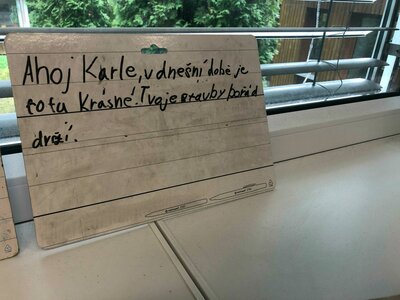 Ahoj Karle, v dnešní době je
totu krásné! Tvoje stavby pořád
drží.